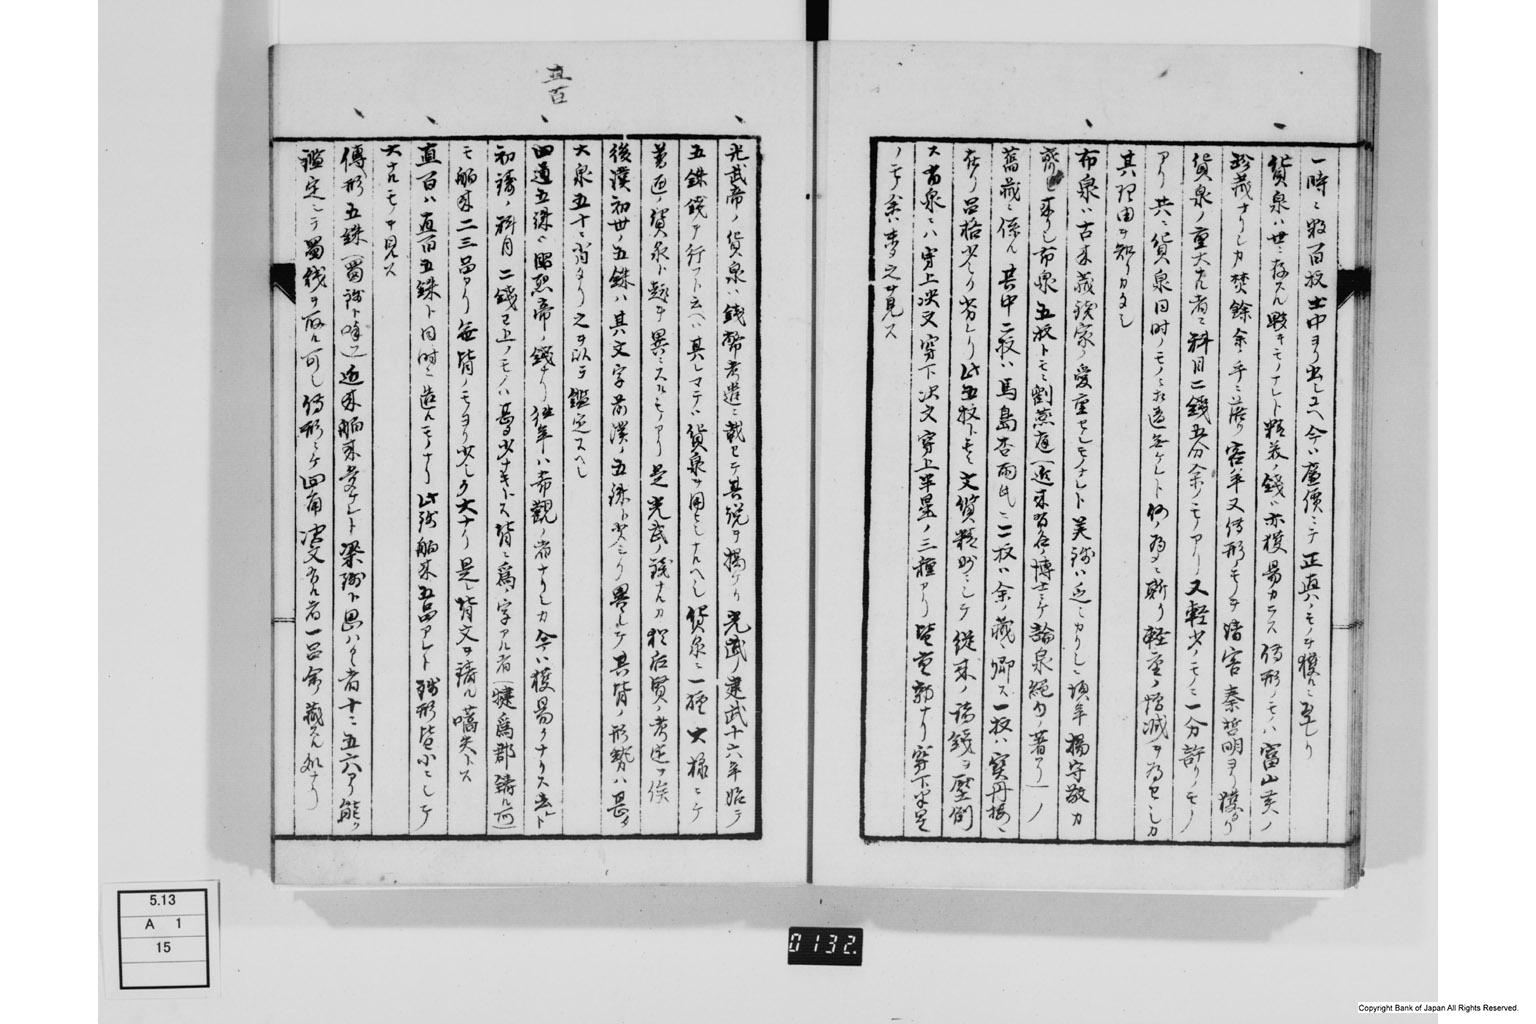 一時ニ数百枚土中ヨリ出シユヘ今ハ廉價ニテ正真ノモノヲ獲ルニ至レリ
貨泉ハ世ニ存スル夥キモノナレト精美ノ錢ハ亦獲易カラス傳形ノモノハ富山英ノ
珍藏ナリシカ焚餘余ノ手ニ落リ客年又傳形ノモノヲ清客秦哲明ヨリ獲タリ
貨泉ノ重大ナル者ニ料目二錢五分余ノモノアリ又軽少ノモノニ一分許リノモノ
アリ共ニ貨泉同時ノモノニ相違無ケレト何ノ為ニ斯ク軽重ノ増減ヲ為セシカ
其理由ヲ知リカタシ
布泉ハ古来藏錢家ノ愛重セシモノナレト美錢ハ乏シカリシニ頃年楊守敬カ
齎シ来リシ布泉五枚トモニ劉燕庭(近来有名ノ博士ニテ論泉絶句ノ著アリ)ノ
舊藏ニ係ル其中二枚ハ馬島杏雨氏ニ二枚ハ余ノ藏ニ帰ス一枚ハ寳丹楼ニ
在リ品格少シク劣レリ此五枚トモニ文質精妙ニシテ従来ノ諸錢ヲ壓倒ス
大布泉ニハ穿上决文穿下决文穿上半星ノ三種アリ皆重郭ナリ穿下半星
ノモノ余ハ夢之ヲ見ス
直百
光武帝ノ貨泉ハ錢幣考遺ニ載セテ其説ヲ掲ケリ光武ノ建武十六年始テ
五銖錢ヲ行フト云ヘハ其レマテハ貨泉ヲ用ヒシナルヘシ貨泉ニ一種大様ニテ
莽近ノ貨泉ト趣ヲ異ニスルモノアリ是光武ノ錢ナルカ猶后賢ノ考定ヲ俟
後漢初世ノ五銖ハ其文字前漢ノ五銖ト少シク異ルテ其背ノ形勢ハ畧
大泉五十ニ省タリ之ヲ以テ鑑定スヘシ
四道五銖ハ昭烈帝ノ錢ナリ往年ハ希觀ノ者ナリシカ今ハ獲易クナリタリ
初鑄ノ料目二錢已上ノモノハ甚少ナキトス背ニ爲ノ字アル者(犍爲郡鑄ル所)
モ舶来二三品アリ無背ノモヨリ少シク大ナリ是レ背文ヲ鑄ル嚆矢トス
直百ハ直百五銖ト同時ニ造ルモノナリ此錢舶来五品アレト錢形皆小ニシテ
大ナルモノヲ見ス
傳形五銖(蜀錢ト唱フ)近来舶来多ケレト梁錢ト思ハルヽ者十ニ五六アリ能ク
鑑定シテ蜀錢ヲ取ル可シ傳形ニテ四角决文アル者一品余藏スル処ナリ
5.13
A 1
15
0132.
Copyright Bank of Japan All Rights Reserved.